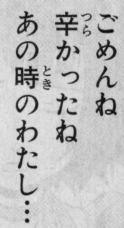 ごめんね
辛かったね
あの時のわたし…